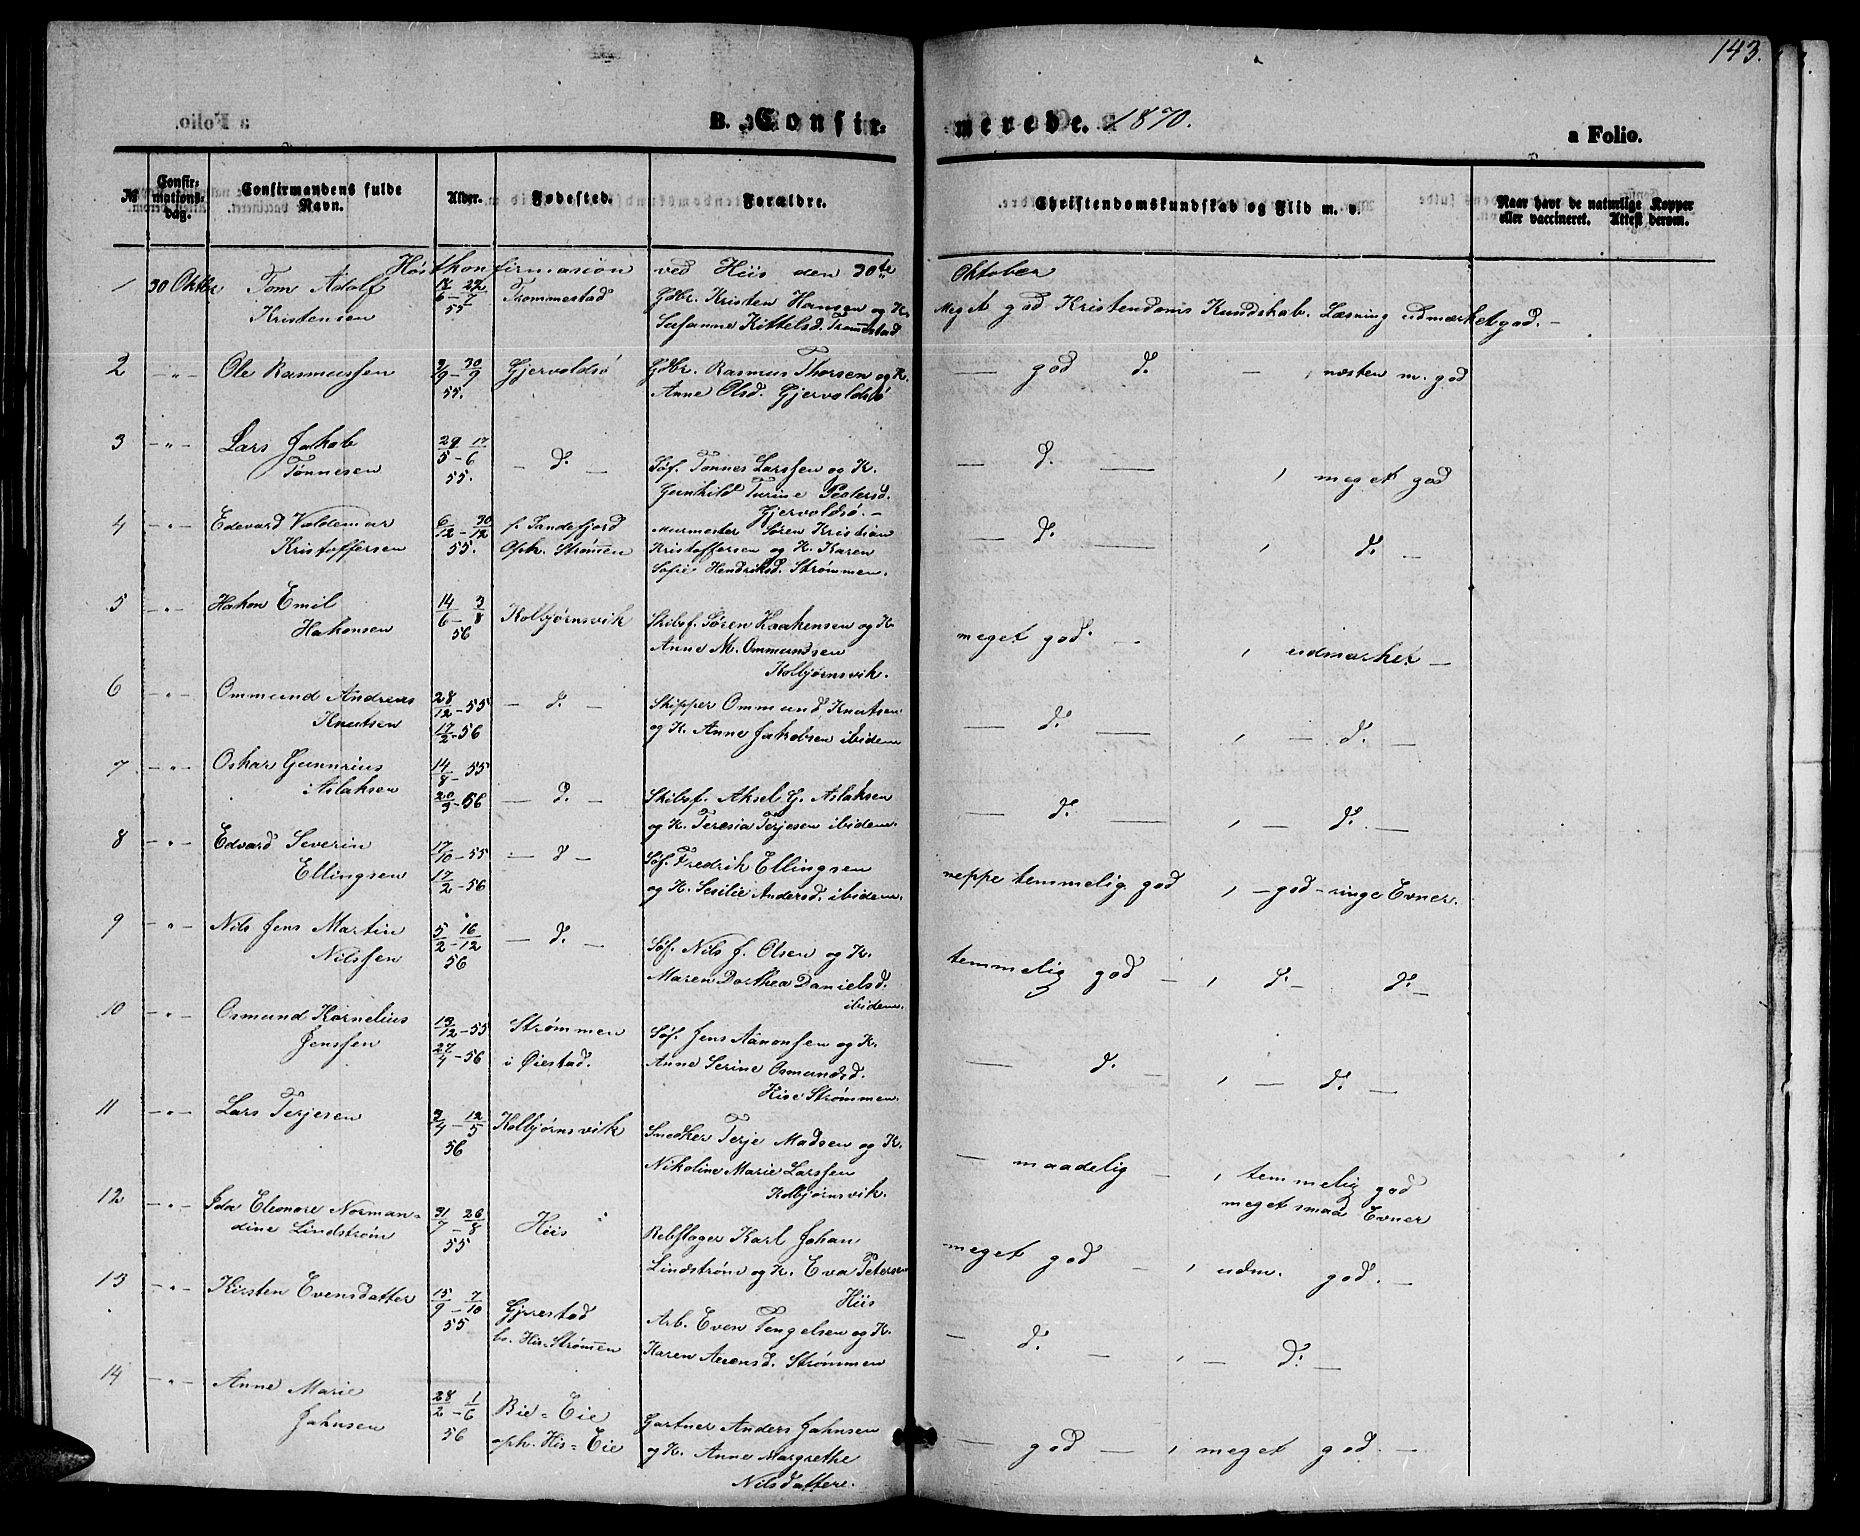 143.
B. Confir-
merede. 1870.
a Folio.
№
Confir-
mations-
dag.
Confirmandens fulde
Navn.
Alder.
Fødested.
Forældre.
Christendomskundskab og Flid m. v.
Naar havt de naturlige Kopper
eller vaccineret. Attest derom.
Høstkonfirmasion ved Hiis den 30te Oktober
1 30 Oktbr Tom Adolf
Kristensen
17/6 - 22/7
55
Trommestad
Gdbr. Kristen Hansen og K.
Susanne Kittelsd. Tromestad
Meget god Kristendoms Kundskab. Læsning udmærket god. -
2 - " - Ole Rasmussen
3/9 - 30/9
55.
Gjervoldsø
Gdbr. Rasmus Thorsen og K.
Anne Olsd. Gjervoldsø
- god d. - , næsten m. god
3 - " - Lars Jakob
Tønnesen
29/5 - 17/6
55.
- d. -
Søf. Tønnes Larssen og K.
Gunhild Turine Pedersd.
Gjervoldsø. -
- d. - , meget god
4 - " - Edevard Valdemar
Kristoffersen
6/12 - 30/12
55.
f. Sandefjord
Oph. Strømen
Murmester Søren Kristian
Kristoffersen og K. Karen
Sofie Hendriksd. Strømmen.
- d. - , d. -
5 - " - Hakon Emil
Hakonsen
14/6 - 3/8
56
Kolbjørnsvik
Skibsf. Søren Haakensen og K.
Anne M. Ommundsen
Kolbjørnsvik.
meget god. - , udmærket -
6 - " - Ommund Andreas
Knutsen
28/12 - 55
17/2 - 56
- d. -
Skipper Ommund Knutsen
og K. Anne Jakobsen ibidem
- d. - , - d. -
7 - " - Oskar Gunnrius
Aslaksen
14/8 - 55
20/3 - 56
- d. -
Skibsf. Aksel G. Aslaksen
og K. Teresia Terjesen ibidem.
- d. - , - d. -
8 - " - Edvard Severin
Ellingsen
17/10 - 55
17/2 - 56
- d -
Søf. Fredrik Ellingsen
og K. Sesilie Andersd. ibidem.
neppe temmelig god , - god - ringe Evner.
9 - " - Nils Jens Martin
Nilssen
5/2 - 16/12
56
- d. -
Søf. Nils J. Olsen og K.
Maren Dorthea Danielsd.
ibidem.
temmelig god - , d. - d. -
10 - " - Osmund Kornelius
Jenssen
13/12 - 55
27/4 - 56
Strømmen
i Øiestad.
Søf. Jens Aanonsen og K.
Anne Serine Osmundsd.
Hise Strømmen.
- d. - , - d. -
11 - " - Lars Terjesen
3/4 - 12/5
56
Kolbjørnsvik
Snedker Terje Madsen og K.
Nikoline Marie Larssen
Kolbjørnsvik.
- maadelig - , temmelig god
meget smaa Evner
12 - " - Ida Eleonore Norman=
dine Lindstrøm
31/7 - 26/8
55
Hiis
Rebslager Karl Johan
Lindstrøm og K. Eva Petersen
Hiis
meget god - , udm. god. -
13 - " - Kirsten Evensdatter
15/9 - 7/10
55
Gjerestad
bo. His-Strømen
Arb. Even Tengelsen og K.
Karen Aanensd. Strømmen
- d. - , - d. -
14 - " - Anne Marie
Jahnsen
28/2 - 1/6
56
Bie=Eie
oph. His=Eie
Gartner Anders Jahnsen
og K. Anne Margrethe
Nilsdattere.
- god - , meget god. -